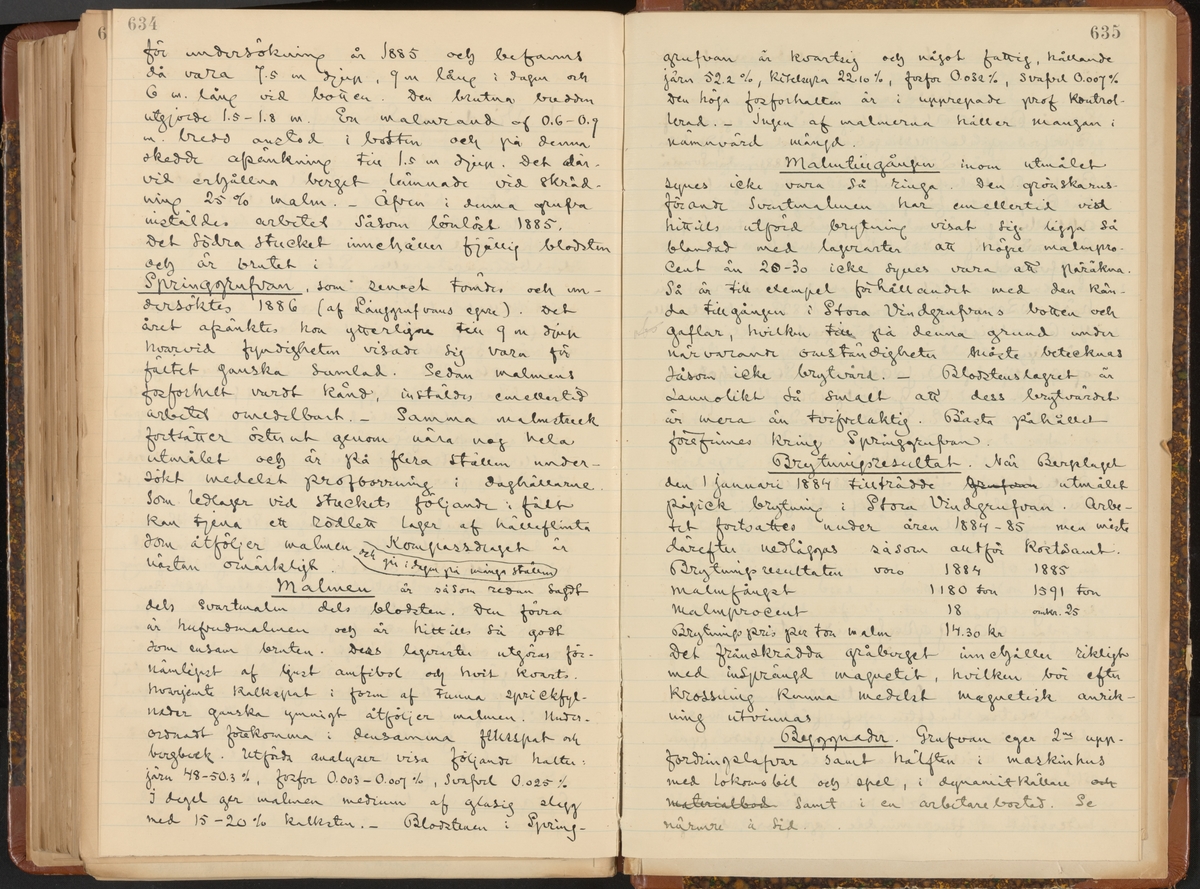 634
för undersökning år 1885 och befanns
då vara 7.5 m djup, 9 m lång i dagen och
6 m. lång vid botten. Den brutna bredden
utgjorde 1.5-1.8 m. En malmrand af 0.6-0.9
m. bredd anstod i botten och på denna
skedde afsänkning till 1.5 m djup. Det där-
vid erhållna berget lämnade vid skräd-
ning 25% malm. – Äfven i denna grufva
inställdes arbetet såsom lönlöst 1885.
Det södra stucket innehåller fjällig blodsten
och är brutet i
Springgrufvan, som senast tömdes och un-
dersöktes 1886 (af Långgrufvans egare). Det
året afsänktes hon ytterligare till 9 m djup
hvarvid fyndigheten visade sig vara för
fältet ganska samlad. Sedan malmens
fosforhalt vardt känd, inställdes emellertid
arbetet omedelbart. – Samma malmstreck
fortsätter österut genom nära nog hela
utmålet och är på flera ställen under-
sökt medelst profborrning i daghällarne.
Som ledlager vid stuckets följande i fält
kan tjena ett rödlett lager af hälleflinta
som åtföljer malmen och Kompassdraget är
går i dagen på många ställen
nästan omärkligt.
Malmen är såsom redan sagdt
dels svartmalm dels blodsten. Den förra
är hufvudmalmen och är hittills så godt
som ensam bruten. Dess lagerarter utgöras för-
nämligast af ljust amfibol och hvit kvarts.
hvarjemte kalkspat i form af tunna sprickfyl-
nader ganska ymnigt åtföljer malmen. Under-
ordnadt förekomma i densamma flusspat och
bergbeck. Utförda analyser visa följande halter:
järn 48-50.3%, fosfor 0.003-0.007%, svafvel 0.025%
I degel ger malmen medium af glasig slagg
med 15-20% kalksten. – Blodstenen i Spring-
635
grufvan är kvartsig och något fattig, hållande
järn 52.2%, kiselsyra 22.10%, fosfor 0.082%, svafvel 0.007%
Den höga fosforhalten är i upprepade prof kontrol-
lerad. – Ingen af malmerna håller mangan i
nämnvärd mängd.
Malmtillgången inom utmålet
synes icke vara så ringa. Den grönskarns-
förande svartmalmen har emellertid vid
hittills utförd brytning visat sig ligga så
blandad med lagerarter att högre malmpro-
cent än 20-30 icke synes vara att påräkna.
Så är till exempel förhållandet med den kän-
da tillgången i Stora Vindgrufvans botten och
gaflar, hvilken till på denna grund under
närvarande omständigheter måste betecknas
såsom icke brytvärd. – Blodstenslagret är
sannolikt så smalt att dess brytvärdet
är mera än tvifvelaktig. Bästa påhållet
förefinnes kring Springgrufvan.
Brytningsresultat. När Bergslaget
den 1 januari 1884 tillträdde Grufvan utmålet
pågick brytning i Stora Vindgrufvan. Arbe-
tet fortsattes under åren 1884-85 men måste
därefter nedläggas såsom alltför kostsamt.
Brytningsresultaten voro 1884 1885
Malmfångst 1180 ton 1591 ton
Malmprocent 18 omkr. 25
Brytningspris per ton malm 14.30 kr
Det frånskrädda gråberget innehåller rikligt
med insprängd magnetit, hvilken bör efter
krossning kunna medelst magnetisk anrik-
ning utvinnas
Byggnader. Grufvan eger 2ne upp-
fordringslafvar samt hälften i maskinhus
med lokomobil och spel, i dynamitkällare och
materialbod samt i en arbetarebostad. Se
närmre å sid.